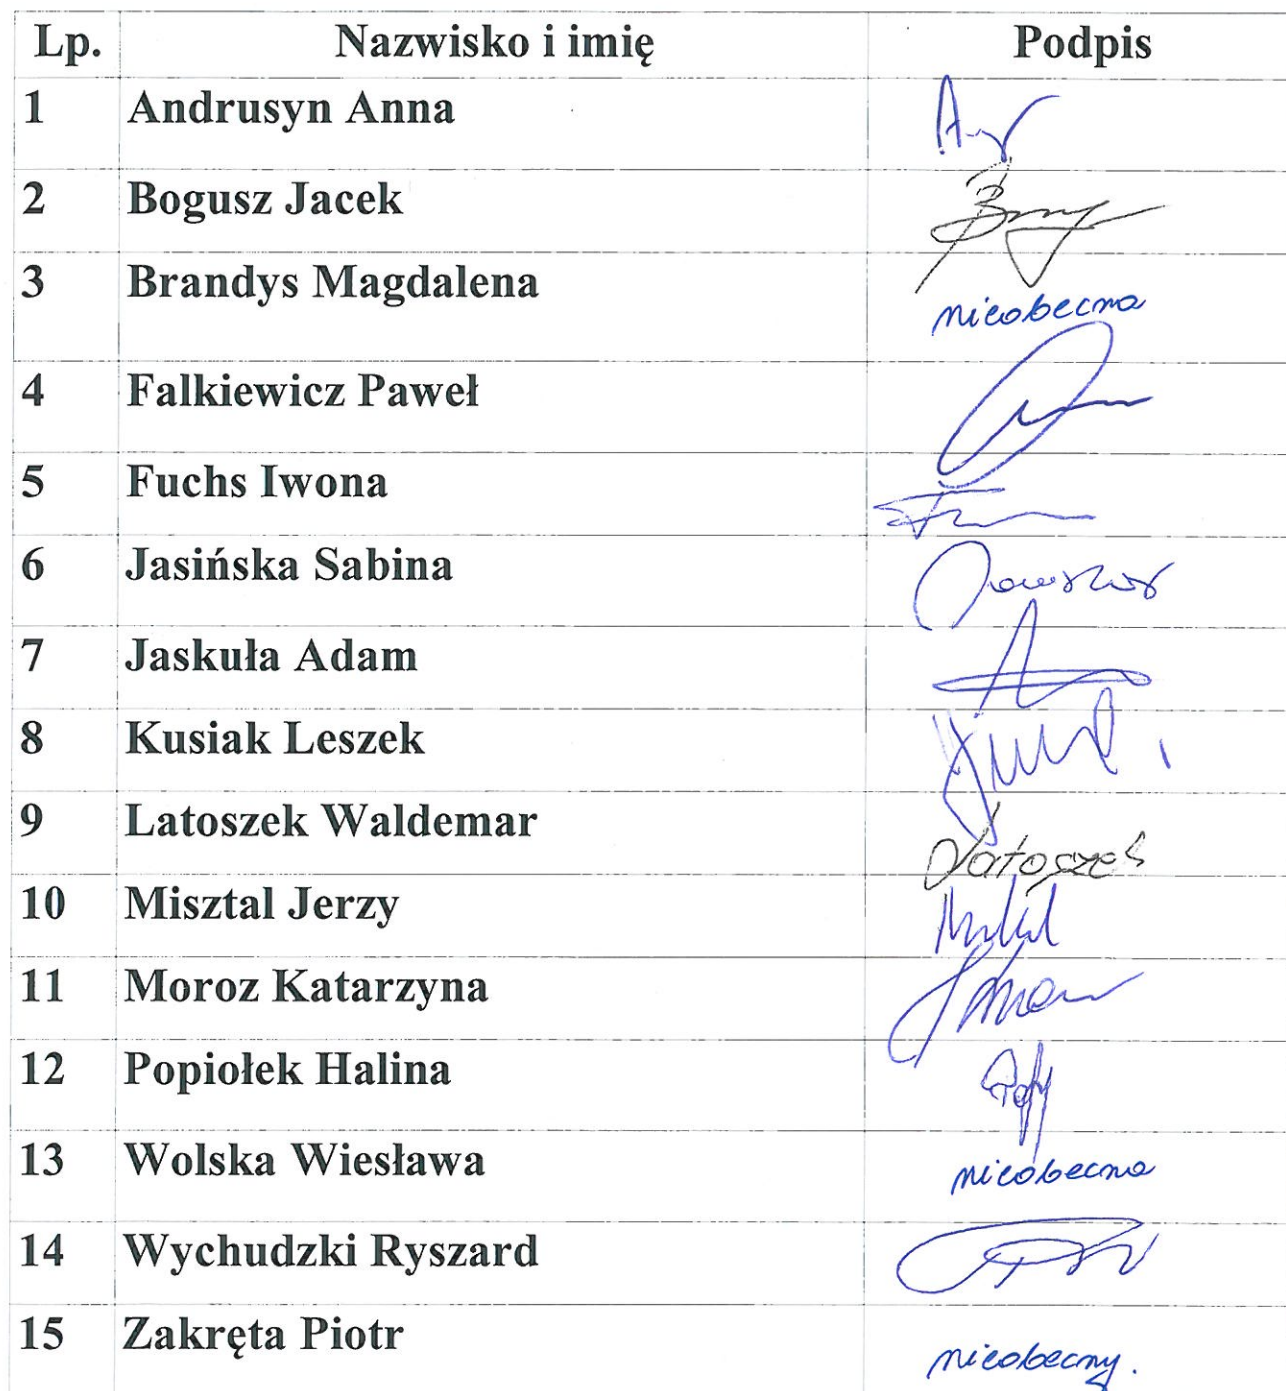 Lp. Nazwisko i imię Podpis
1 Andrusyn Anna
2 Bogusz Jacek
3 Brandys Magdalena nieobecna
4 Falkiewicz Paweł
5 Fuchs Iwona
6 Jasińska Sabina
7 Jaskuła Adam
8 Kusiak Leszek
9 Latoszek Waldemar Latoszek
10 Misztal Jerzy
11 Moroz Katarzyna
12 Popiołek Halina
13 Wolska Wiesława nieobecna
14 Wychudzki Ryszard
15 Zakręta Piotr nieobecny.